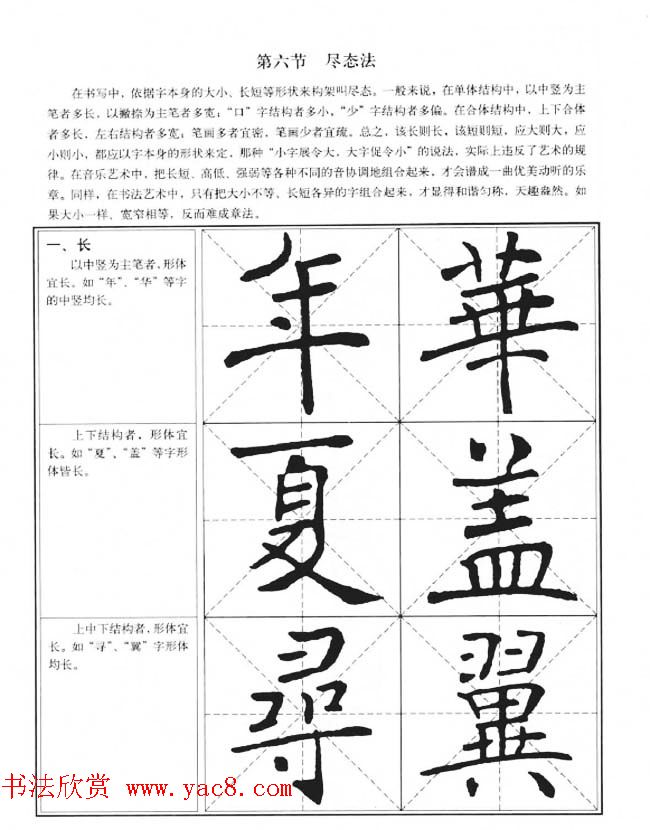 第六节 尽态法
在书写中，依据字本身的大小、长短等形状来构架叫尽态。一般来说，在单体结构中，以中竖为主
笔者多长，以撇捺为主笔者多宽；“口”字结构者多小，“少”字结构者多偏。在合体结构中，上下合体
者多长，左右结构者多宽，笔画多者宜密，笔画少者宜疏。总之，该长则长，该短则短，应大则大，应
小则小，都应以字本身的形状来定，那种“小字展令大，大字促令小”的说法，实际上违反了艺术的规
律。在音乐艺术中，把长短、高低、强弱等各种不同的音协调地组合起来，才会谱成一曲优美动听的乐
章。同样，在书法艺术中，只有把大小不等、长短各异的字组合起来，才显得和谐匀称，天趣盎然。如
果大小一样、宽窄相等，反而难成章法。
一、长
以中竖为主笔者，形体
宜长。如“年”、“华”等字
的中竖均长。
年 華
上下结构者，形体宜
长。如“夏”、“盖”等字形
体皆长。
夏 盖
上中下结构者，形体宜
长。如“寻”、“翼”字形体
均长。
尋 翼
书法欣赏 www.yac8.com